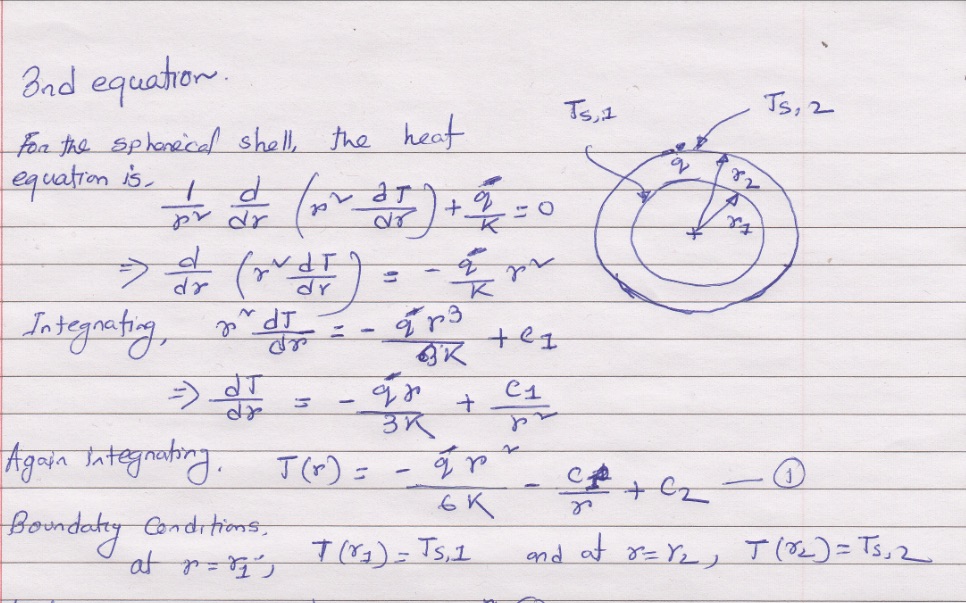 3nd equation.
For the spherical shell, the heat
equation is,
1/r² d/dr (r² dT/dr) + q̇/K = 0
⇒ d/dr (r² dT/dr) = - q̇/K r²
Integrating, r² dT/dr = - q̇r³/3K + C1
⇒ dT/dr = - q̇r/3K + C1/r²
Again integrating. T(r) = - q̇r²/6K - C1/r + C2 — ①
Boundary Conditions.
at r = r1, T(r1) = Ts,1 and at r = r2, T(r2) = Ts,2
Ts,1
Ts,2
q̇
r2
r1